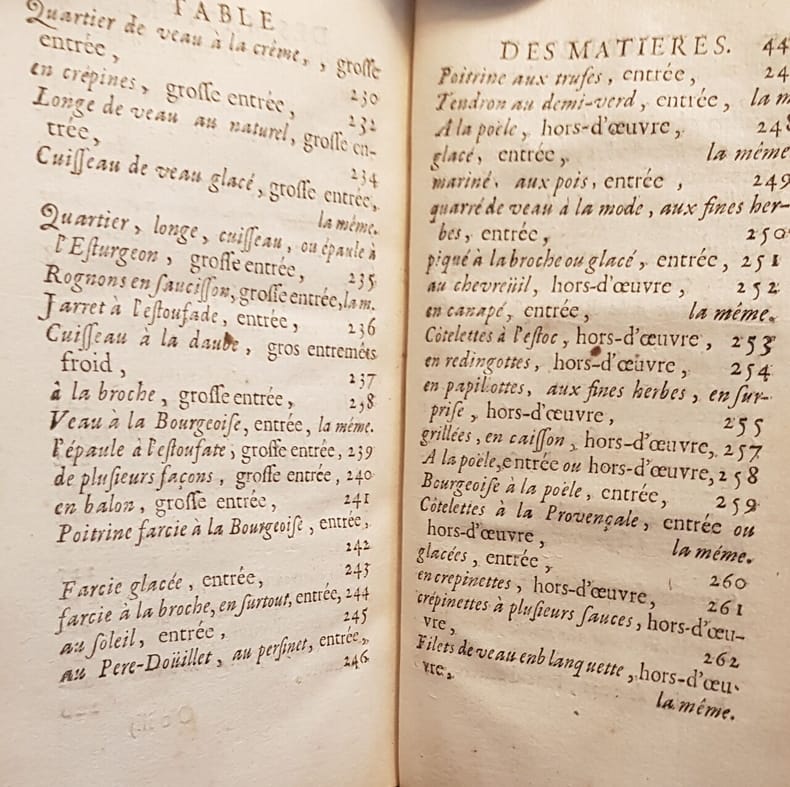 TABLE
Quartier de veau à la crême, , grosse
entrée, 230
en crépines, grosse entrée, 232
Longe de veau au naturel, grosse en-
trée, 234
Cuisseau de veau glacé, grosse entrée,
la même.
Quartier, longe, cuisseau, ou épaule à
l'Esturgeon, grosse entrée, 235
Rognons en saucisson, grosse entrée, la m.
Jarret à l'estoufade, entrée, 236
Cuisseau à la daube, gros entremêts
froid, 237
à la broche, grosse entrée, 238
Veau à la Bourgeoise, entrée, la même.
l'épaule à l'estoufate, grosse entrée, 239
de plusieurs façons, grosse entrée, 240
en balon, grosse entrée, 241
Poitrine farcie à la Bourgeoise, entrée,
242
Farcie glacée, entrée, 243
farcie à la broche, en surtout, entrée, 244
au soleil, entrée, 245
au Pere-Doüillet, au persinet, entrée,
246
DES MATIERES. 44
Poitrine aux trufes, entrée, 24
Tendron au demi-verd, entrée, la m
A la poële, hors-d'œuvre, 248
glacé, entrée, la même
mariné, aux pois, entrée, 249
quarré de veau à la mode, aux fines her-
bes, entrée, 250
piqué à la broche ou glacé, entrée, 251
au chevreüil, hors-d'œuvre, 252
en canapé, entrée, la même.
Côtelettes à l'estoc, hors-d'œuvre, 253
en redingottes, hors-d'œuvre, 254
en papillottes, aux fines herbes, en sur-
prise, hors-d'œuvre, 255
grillées, en caisson, hors-d'œuvre, 257
A la poële, entrée ou hors-d'œuvre, 258
Bourgeoise à la poële, entrée, 259
Côtelettes à la Provençale, entrée ou
hors-d'œuvre, la même.
glacées, entrée, 260
en crepinettes, hors-d'œuvre, 261
crépinettes à plusieurs sauces, hors-d'œu-
vre, 262
Filets de veau enb lanquette, hors-d'œu-
vre, la même.